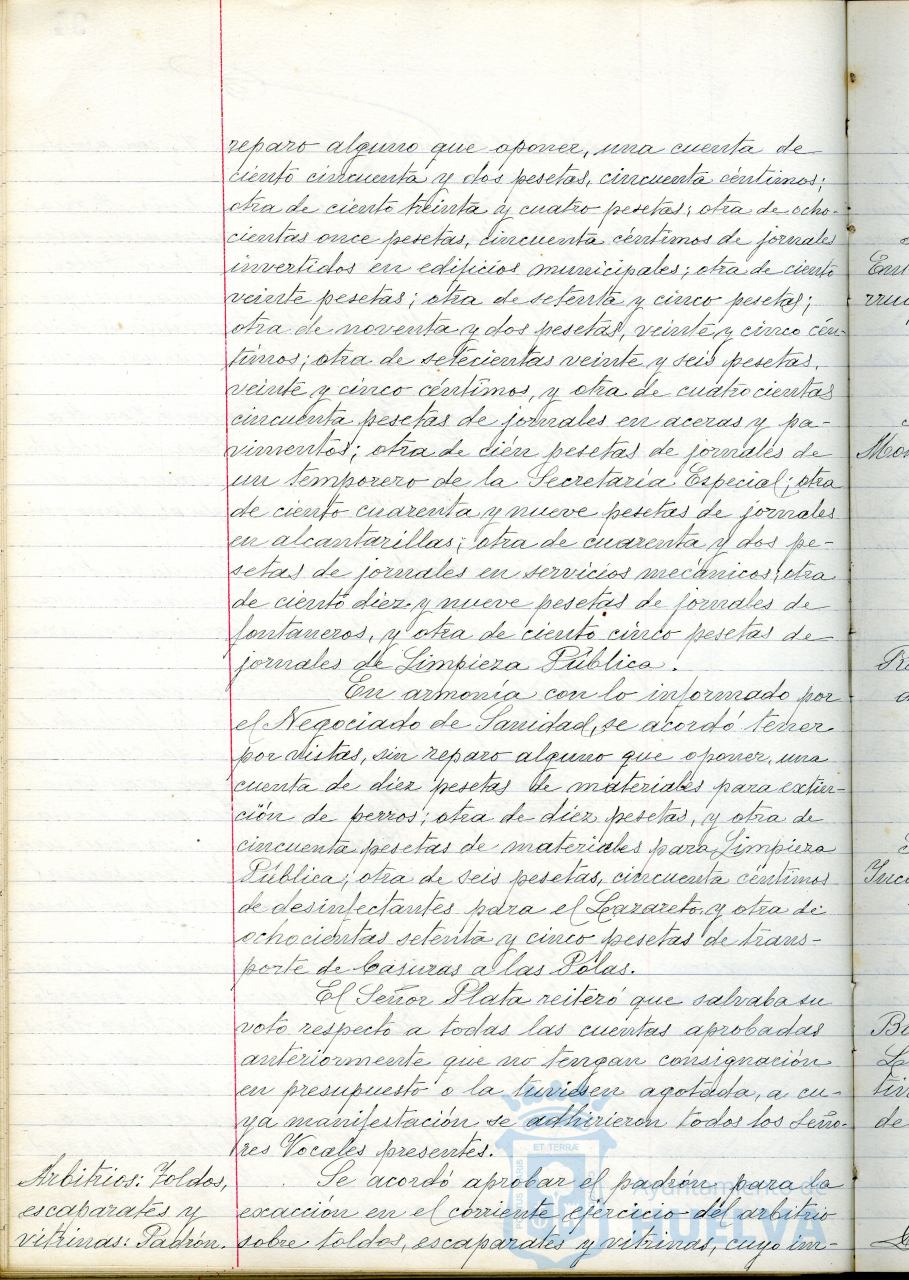 reparo alguno que oponer, una cuenta de
ciento cincuenta y dos pesetas, cincuenta céntimos;
otra de ciento treinta y cuatro pesetas; otra de ocho-
cientas once pesetas, cincuenta céntimos de jornales
invertidos en edificios municipales; otra de ciento
veinte pesetas; otra de setenta y cinco pesetas;
otra de noventa y dos pesetas, veinte y cinco cén-
timos; otra de setecientas veinte y seis pesetas,
veinte y cinco céntimos, y otra de cuatrocientas
cincuenta pesetas de jornales en aceras y pa-
vimentos; otra de cién pesetas de jornales de
un temporero de la Secretaría Especial; otra
de ciento cuarenta y nueve pesetas de jornales
en alcantarillas; otra de cuarenta y dos pe-
setas de jornales en servicios mecánicos; otra
de ciento diez y nueve pesetas de jornales de
fontaneros, y otra de ciento cinco pesetas de
jornales de Limpieza Pública.
En armonía con lo informado por
el Negociado de Sanidad, se acordó tener
por vistas, sin reparo alguno que oponer, una
cuenta de diez pesetas de materiales para extin-
ción de perros; otra de diez pesetas, y otra de
cincuenta pesetas de materiales para Limpieza
Pública; otra de seis pesetas, cincuenta céntimos
de desinfectantes para el Lazareto, y otra de
ochocientas setenta y cinco pesetas de trans-
porte de basuras a las Polas.
El Señor Plata reiteró que salvaba su
voto respecto a todas las cuentas aprobadas
anteriormente que no tengan consignación
en presupuesto o la tuviesen agotada, a cu-
ya manifestación se adhirieron todos los Seño-
res Vocales presentes.
Arbitrios: Toldos,
escaparates y
vitrinas: Padrón.
Se acordó aprobar el padrón para la
exacción en el corriente ejercicio del arbitrio
sobre toldos, escaparates y vitrinas, cuyo im-
ET TERRÆ
Ayuntamiento de
HUELVA